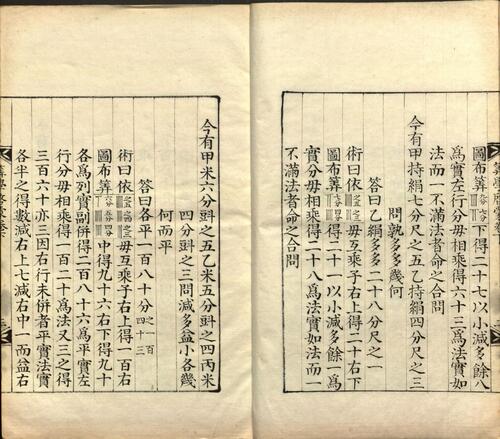 圖布筭下得二十七以小減多餘八
爲實左行分毋相乘得六十三爲法實如
法而一不滿法者命之合問
今有甲持絹七分尺之五乙持絹四分尺之三
問孰多多幾何
答曰乙絹多多二十八分尺之一
術曰依毋互乘子右上得二十右下
圖布筭得二十一以小減多餘一爲
實分毋相乘得二十八爲法實如法而一
不滿法者命之合問
今有甲米六分㪷之五乙米五分㪷之四丙米
四分㪷之三問減多益小各幾
何而平
答曰各平一百八十分之一百四十三
術曰依毋互乘子右上得一百右
圖布筭中得九十六右下得九十
各爲列實副併得二百八十六爲平實左
行分毋相乘得一百二十爲法又三之得
三百六十亦三因右行未併者平實法實
各半之得數減右上七減右中一而益右